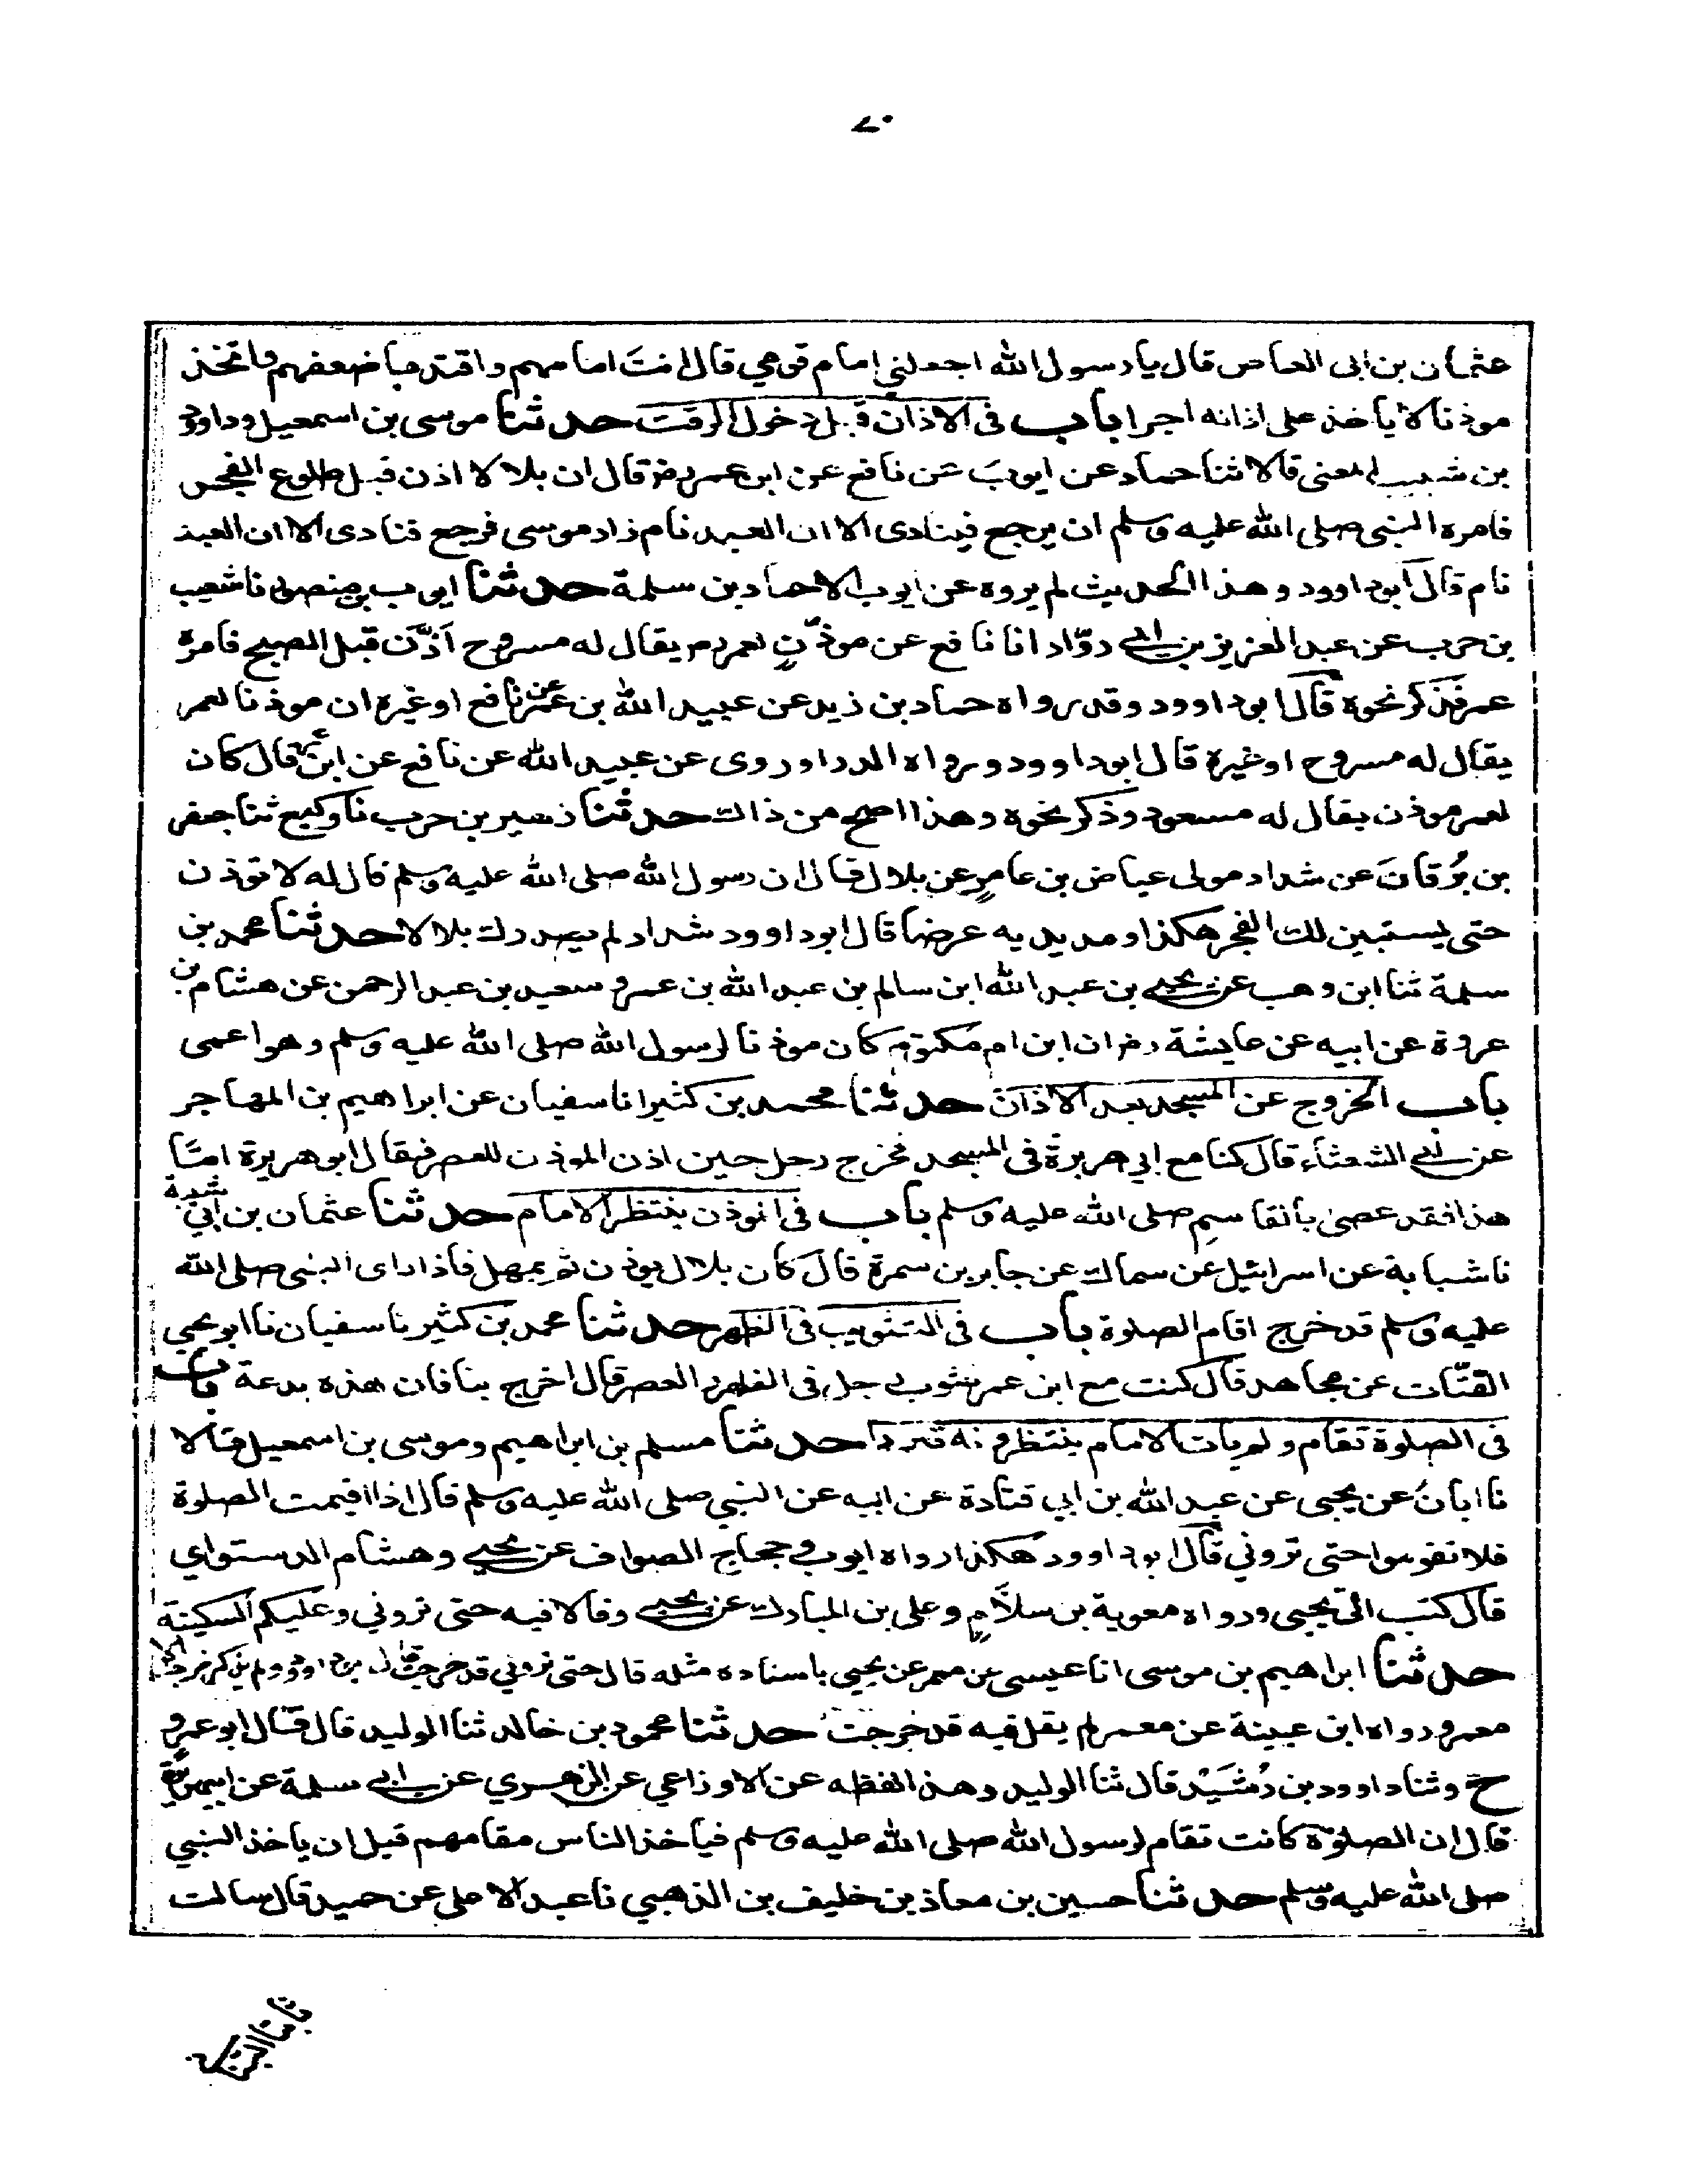 ٧٠
عثمان بن ابى العاص قال يا رسول الله اجعلني إمام قومي قال انتَ امامهم واقتد باضعفهم واتخذ
موذنا لا ياخذ على اذانه اجرا باب في الاذان قبل دخول الوقت حدثنا موسى بن اسمعيل وداوود
بن شبيب المعنى قالا ثنا حماد عن ايوبَ عَن نافع عن ابن عمر رض قال ان بلالا اذن قبل طلوع الفجر
فامره النبي صلى الله عليه وسلم ان يرجع فينادى الا ان العبد نام زاد موسى فرجع فنادى الا ان العبد
نام قال ابو داوود وهذا الحديث لم يروه عن ايوب الا حماد بن سلمة حدثنا ايوب بن منصور نا شعيب
بن حرب عن عبد العزيز بن ابي روّاد انا نافع عن موذّنٍ لعمر رم يقال له مسروح اَذّنَ قبل الصبح فامره
عمر فذكر نحوه قال ابو داوود وقد رواه حماد بن زيد عن عبيد الله بن عمر عن نافع او غيره ان موذنا لعمر
يقال له مسروح او غيره قال ابو داوود ورواه الدراوردى عن عبيد الله عن نافع عن ابن عمر قال كان
لعمر موذن يقال له مسعود وذكر نحوه وهذا اصح من ذالك حدثنا زهير بن حرب نا وكيع ثنا جعفر
بن بُرقانَ عن شداد مولى عياض بن عامرٍ عن بلال قال ان رسول الله صلى الله عليه وسلم قال له لا توذن
حتى يستبين لك الفجر هكذا ومد يديه عرضا قال ابو داوود شداد لم يدرك بلالا حدثنا محمد بن
سلمة ثنا ابن وهب عن يحيى بن عبد الله ابن سالم بن عبد الله بن عمر و سعيد بن عبد الرحمن عن هشام بن
عروة عن ابيه عن عايشة رض ان ابن ام مكتوم كان موذنا لرسول الله صلى الله عليه وسلم وهو اعمى
باب الخروج عن المسجد بعد الاذان حدثنا محمد بن كثير انا سفيان عن ابراهيم بن المهاجر
عن ابي الشعثاء قال كنا مع ابي هريرة في المسجد فخرج رجل حين اذن الموذن للعصر فقال ابو هريرة امّا
هذا فقد عصى بالقاسمِ صلى الله عليه وسلم باب في الموذن ينتظر الامام حدثنا عثمان بن ابي شيبة
نا شبابة عن اسرائيل عن سماك عن جابر بن سمرة قال كان بلال يوذن ثم يمهل فاذا راى النبي صلى الله
عليه وسلم قد خرج اقام الصلوة باب في التثويب في الظهر حدثنا محمد بن كثير نا سفيان نا ابو يحيى
القتّات عن مجاهد قال كنت مع ابن عمر فثوب رجل في الظهر والعصر قال اخرج بنا فان هذه بدعة باب
في الصلوة تقام ولم يات الامام ينتظرونه قعودا حدثنا مسلم بن ابراهيم وموسى بن اسمعيل قالا
نا ابانُ عن يحيى عن عبد الله بن ابي قتادة عن ابيه عن النبي صلى الله عليه وسلم قال اذا اقيمت الصلوة
فلا تقوموا حتى تروني قال ابو داوود هكذا رواه ايوب وحجاج الصواف عن يحيى وهشام الدستواي
قال كتب الى يحيى ورواه معوية بن سلّامٍ وعلى بن المبارك عن يحيى وقالا فيه حتى تروني وعليكم السكينة
حدثنا ابراهيم بن موسى انا عيسى عن معمر عن يحيى باسناده مثله قال حتى تروني قد خرجت قال ابو داوود ولم يذكر خرجت الا
معمر ورواه ابن عيينة عن معمر لم يقل فيه قد خرجت حدثنا محمود بن خالد ثنا الوليد قال قال ابو عمرو
ح وثنا داوود بن رُشَيْد قال ثنا الوليد وهذا لفظه عن الاوزاعي عن الزهري عن ابي سلمة عن ابي هريرة
قال ان الصلوة كانت تقام لرسول الله صلى الله عليه وسلم فياخذ الناس مقامهم قبل ان ياخذ النبي
صلى الله عليه وسلم حدثنا حسين بن معاذ بن خليف بن الذهبي نا عبد الاعلى عن حميد قال سالت